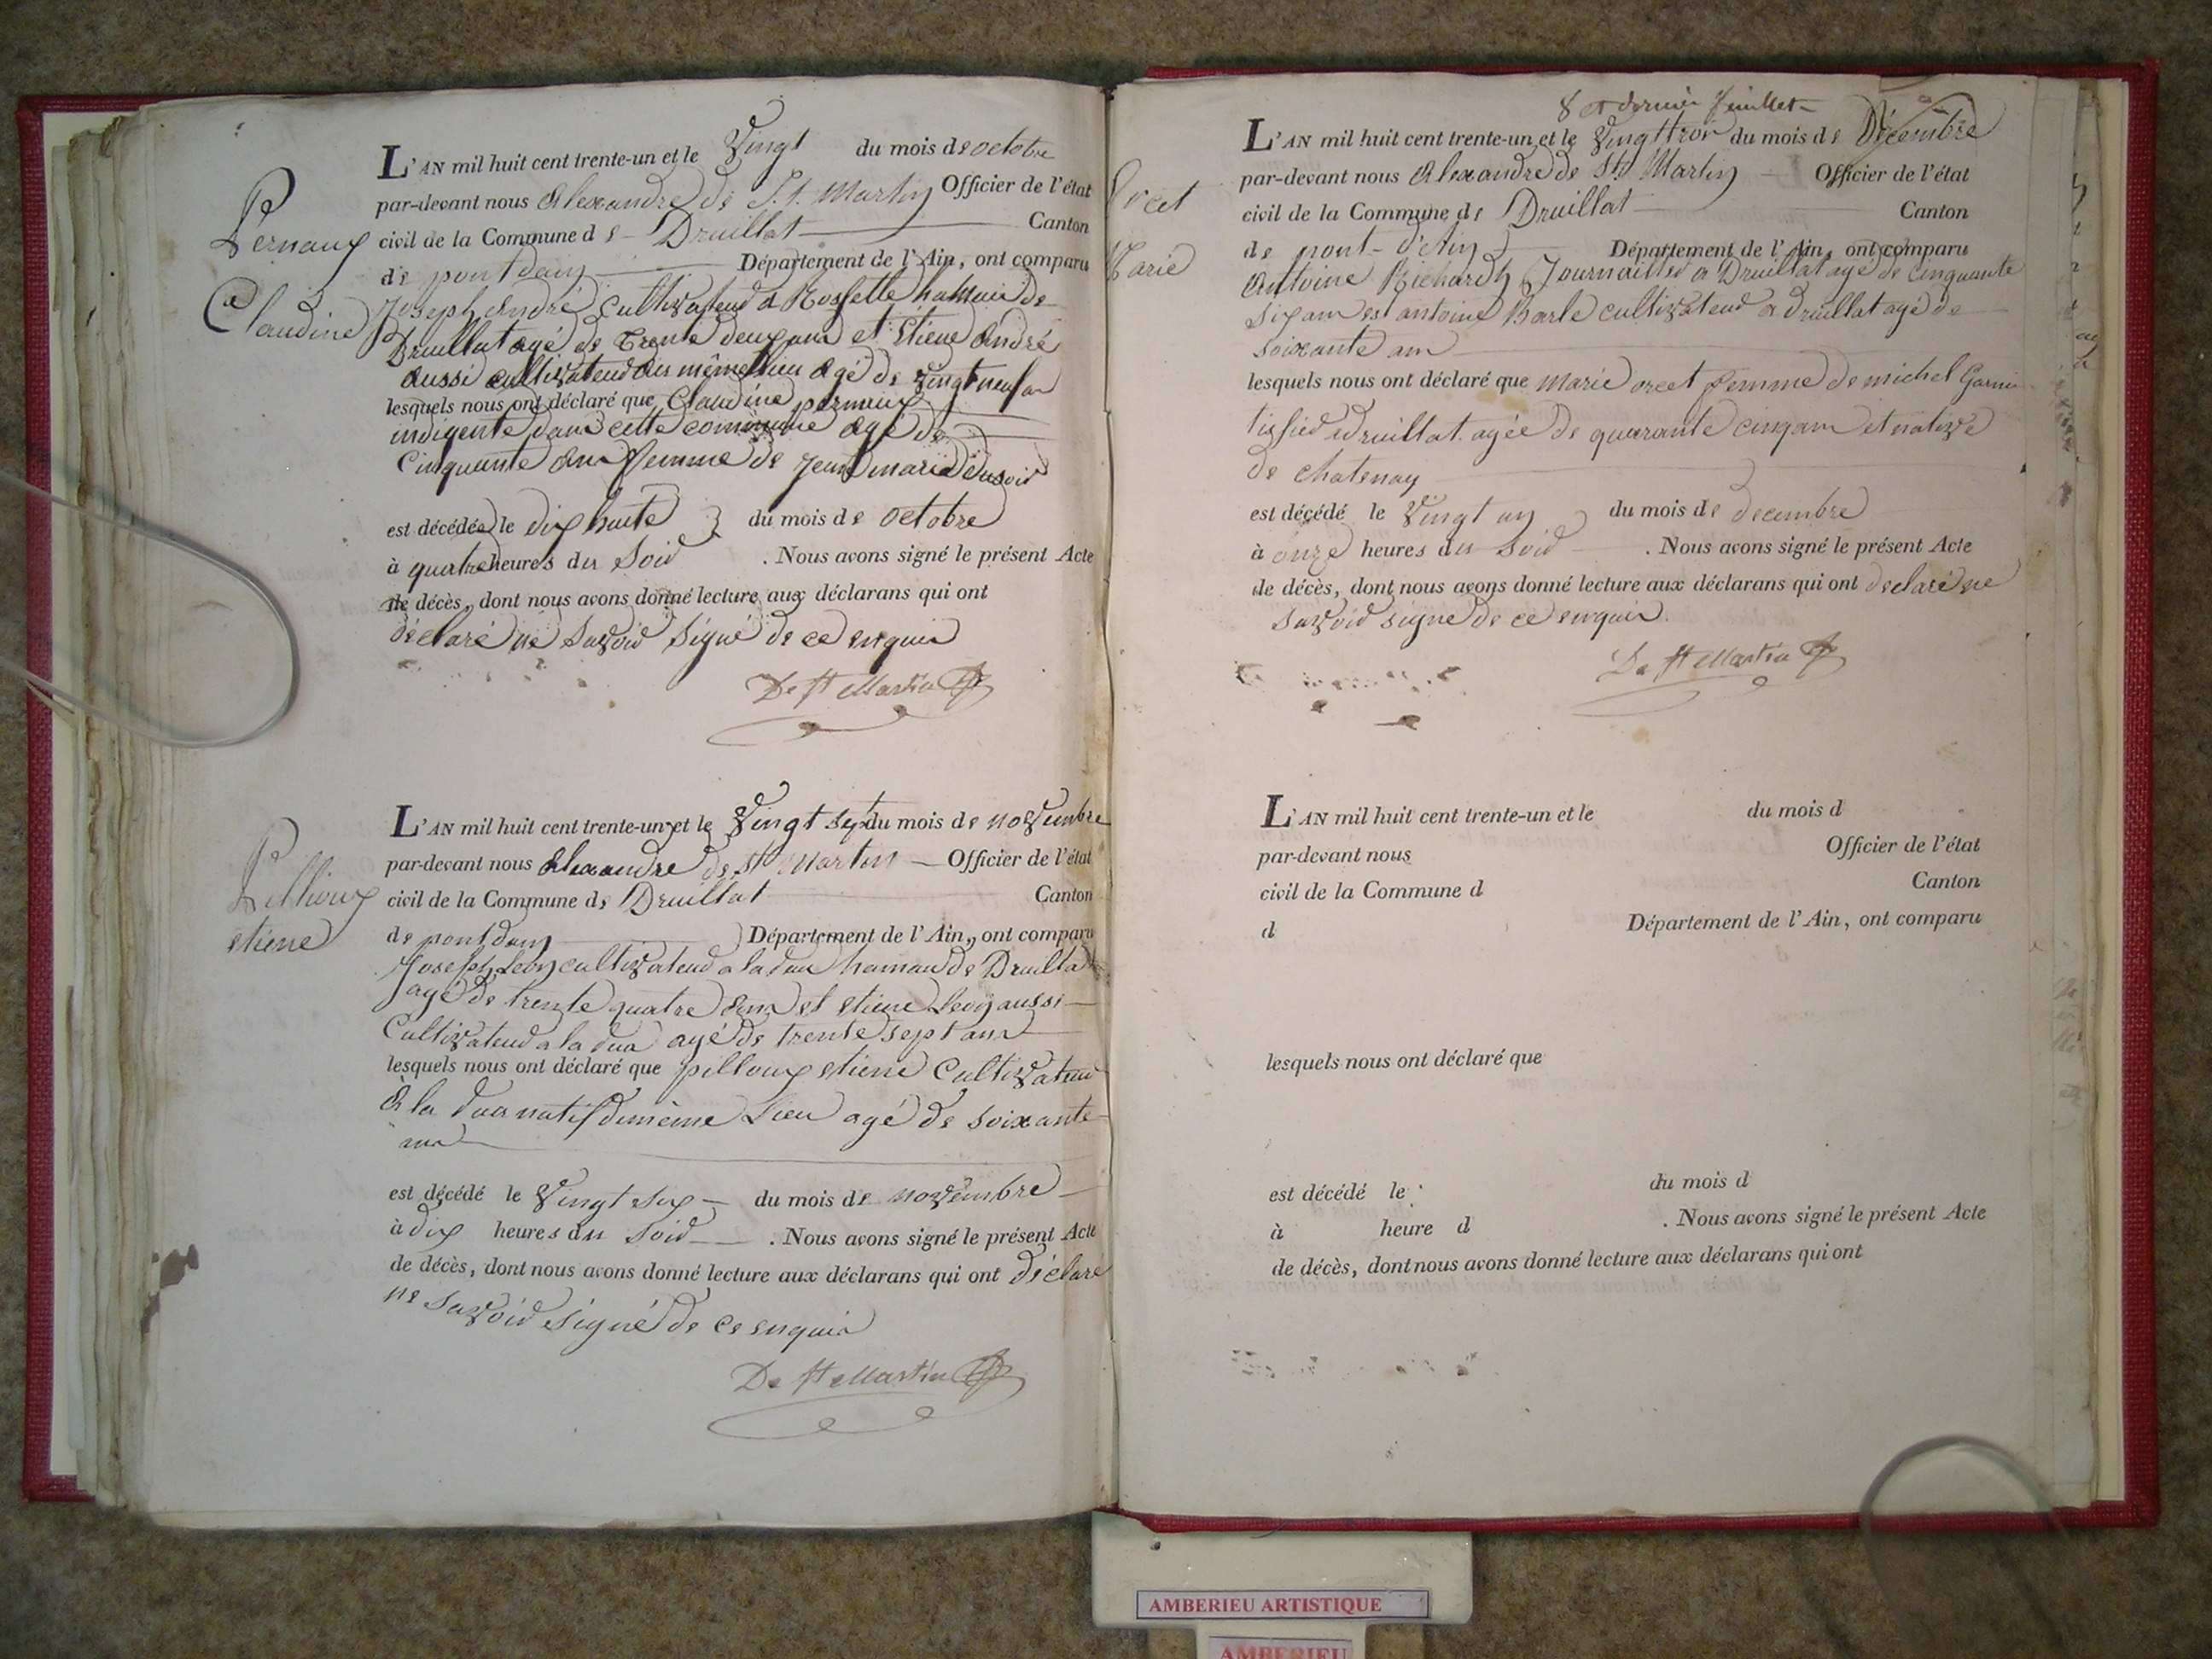 Pernaux
Claudine
L'AN mil huit cent trente-un et le Vingt du mois de octobre
par-devant nous Alexandre de St. Martin Officier de l'état
civil de la Commune de Druillat Canton
de pont dain Département de l'Ain, ont comparu
Joseph André Cultivateur a Rossette hamau de
Druillat agé de Trente deux ans et Etiene André
Aussi cultivateur au même lieu agé de vingt neuf an
lesquels nous ont déclaré que Claudine pernaux
indigente dans cette commune agé de
Cinquante ans femme de jean marie
est décédée le dix huite du mois de octobre
à quatre heures du Soir . Nous avons signé le présent Acte
de décès, dont nous avons donné lecture aux déclarans qui ont
déclaré ne Savoir Signé de ce enquis
De St Martin
Pilloux
etiene
L'AN mil huit cent trente-un et le Vingt sept du mois de novembre
par-devant nous Alexandre de St Martin Officier de l'état
civil de la Commune de Druillat Canton
de pont dain Département de l'Ain, ont comparu
Joseph Leon cultivateur a la dua hamau de Druillat
agé de trente quatre ans et etiene Leon aussi
Cultivateur a la dua agé de trente sept ans
lesquels nous ont déclaré que pilloux etiene Cultivateur
A la dua natif du même Lieu agé de soixante
ans
est décédé le Vingt six du mois de novembre
à dix heures du Soir . Nous avons signé le présent Acte
de décès, dont nous avons donné lecture aux déclarans qui ont déclaré
ne Savoir Signé de ce enquis
De St Martin
8 et dernier feuillet
Orcet
Marie
L'AN mil huit cent trente-un et le Vingt trois du mois de Décembre
par-devant nous Alexandre de St Martin Officier de l'état
civil de la Commune de Druillat Canton
de pont-d'Ain Département de l'Ain, ont comparu
Antoine Richard Journailler a Druillat agé de cinquante
six ans et antoine Barle cultivateur a druillat agé de
soixante ans
lesquels nous ont déclaré que Marie orcet femme de michel Garnier
tissier a druillat agée de quarante cinq ans et native
de chatenay
est décédé le Vingt un du mois de decembre
à onze heures du Soir . Nous avons signé le présent Acte
de décès, dont nous avons donné lecture aux déclarans qui ont declaré ne
savoir signe de ce enquis
De St Martin
L'AN mil huit cent trente-un et le du mois d
par-devant nous Officier de l'état
civil de la Commune d Canton
d Département de l'Ain, ont comparu
lesquels nous ont déclaré que
est décédé le du mois d
à heure d . Nous avons signé le présent Acte
de décès, dont nous avons donné lecture aux déclarans qui ont
AMBERIEU ARTISTIQUE
AMBERIEU